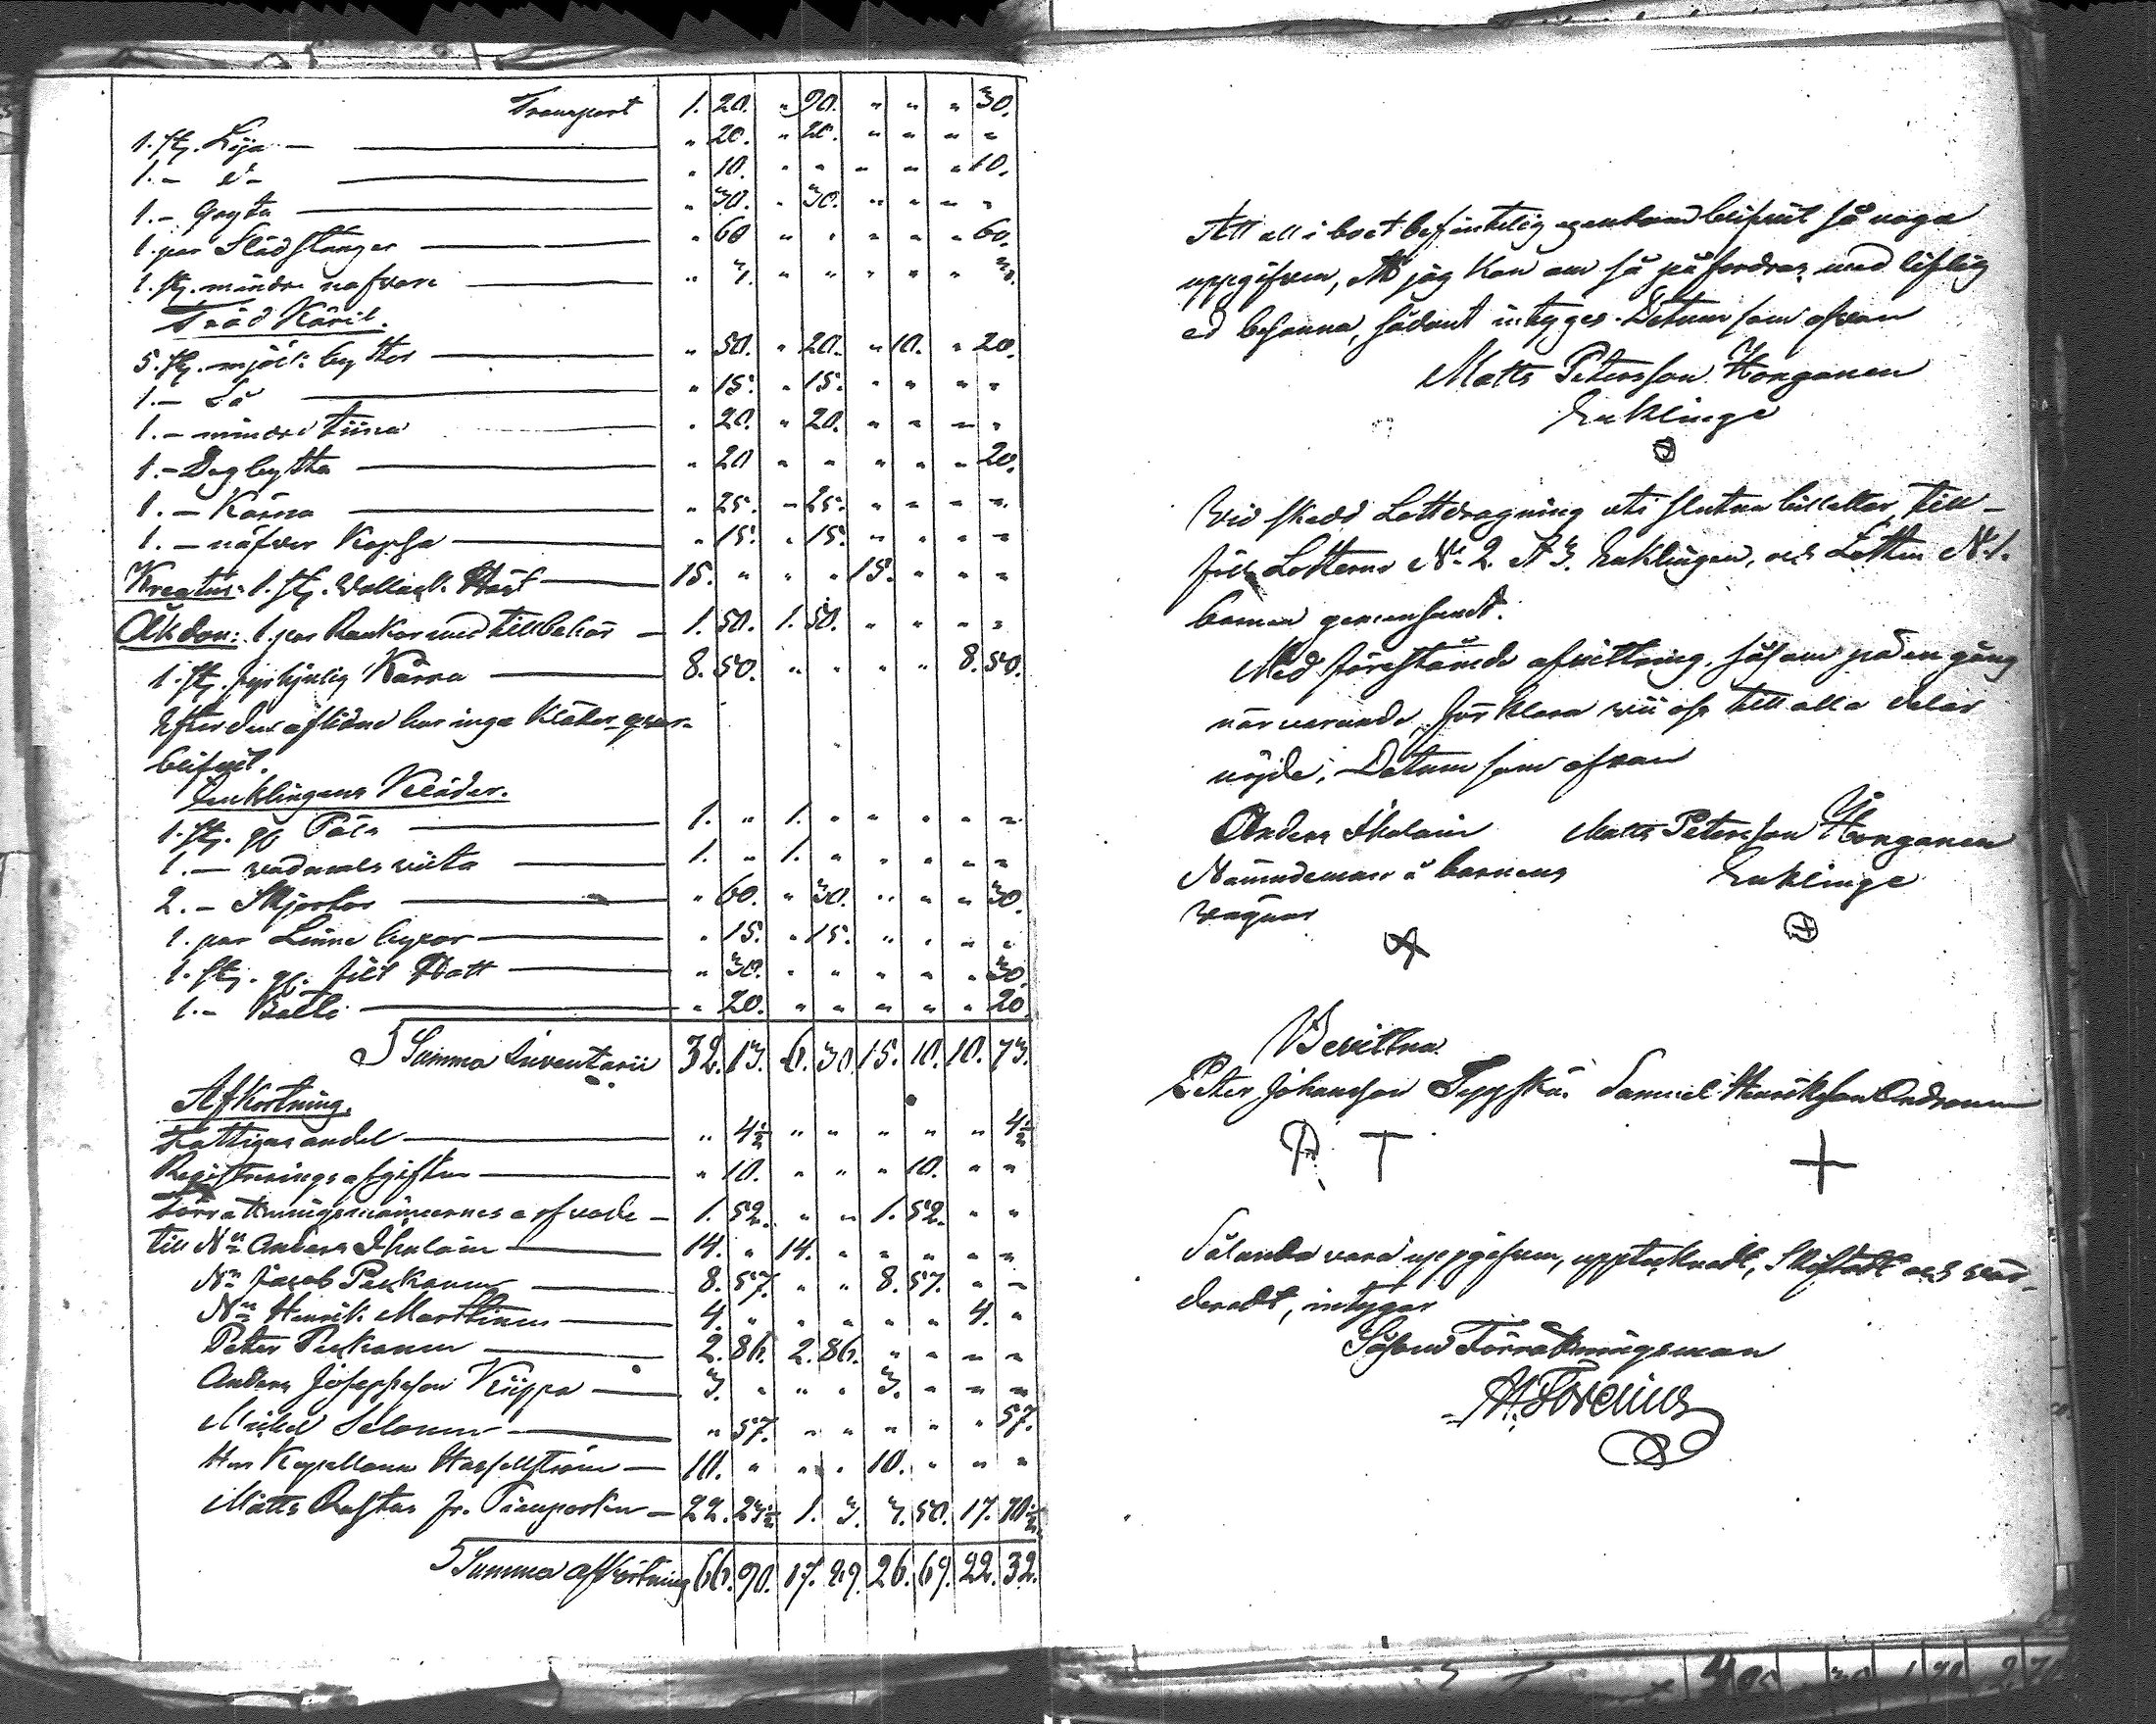 Transport 1. 20. " 90. " " " 30.
1. st. Lija — " 20. " 20. " " " "
1. - d:o " 10. " " " " " 10.
1. - Gryta " 30. " 30. " " " "
1. par Slädstänger " 60 " " " " " 60.
1. st. mindre nafvare " 3. " " " " " 3.
Träd Käril.
5. st. mjölk byttor " 50. " 20. " 10. " 20.
1. - Så " 15. " 15. " " " "
1. - mindre tiina " 20. " 20. " " " "
1. - Deg bytta " 20 " " " " " 20.
1. - Kärna " 25. " 25. " " " "
1. - näfver " 15. " 15. " " " "
Kreatur: 1. st. Wallack Häst 15. " " " 15. " " "
Åkdon: 1. par med tillbehör 1. 50. 1. 50. " " " "
1. st. fyrhjulig Kärra 8. 50. " " " " 8. 50.
Efter den aflidne har inga Kläder qvar-
blifvit.
Enklingens Kläder.
1. st. gl Päls 1. " 1. " " " " "
1. - vadmals 1. " 1. " " " " "
2. - Skjortor " 60. " 30. " " " 30.
1. par Linne byxor " 15. " 15. " " " "
1. st. gl. filt Hatt " 30. " " " " " 30.
1. - Bälte " 20. " " " " " 20.
Summa Inventarii 32. 13. 6. 30. 15. 10. 10. 73.
Afkortning.
Fattigas andel " 4½ " " " " " 4½
Registrerings afgiften " 10. " " " 10. " "
Förrättningsmännernes arfvode 1. 52. " " 1. 52. " "
till Nn Anders Ikaläin 14. " 14. " " " " "
Nn Jacob Pekanen 8. 57. " " 8. 57. " "
Nn Henrik Marttinen 4. " " " " " 4. "
Peter Pekanen 2. 86. 2. 86. " " " "
Anders Josephsson Kiippa 3. " " " 3. " " "
Michel " 57. " " " " " 57.
Herr Kapellanen Hasselström 10. " " " 10. " " "
Matts 22. 23½ 1. 3. 3. 50. 17. 70½
Summa afkortning 66. 90. 17. 89. 26. 69. 22. 32.
Att all i boet befintelig egendom blifvit så noga
uppgifven, att jag kan om så påfordras med liflig
ed besanna, sådant intyges. Datum som ofvan
Matts Petersson Honganen
Enklinge
Vid skedd Lottdragning uti slutna billetter, till-
föll Lotterne No 2. & 3. Enklingen, och Lotten No 1.
barnen gemensamt.
Med förestående afvittring, såsom på en gång
närvarande, förklara wii oss till alla delar
nöjde; Datum som ofvan
Anders Ikaläin Matts Petersson Honganen
Nämndeman å barnens Enklinge
vägnar
Bevittna
Peter Johansson Samuel Henriksson Andronen
P. T
Sålunda vara uppgifven, upptecknadt, Skiftadt och vär-
deradt, intygar
Såsom Förrättningsman